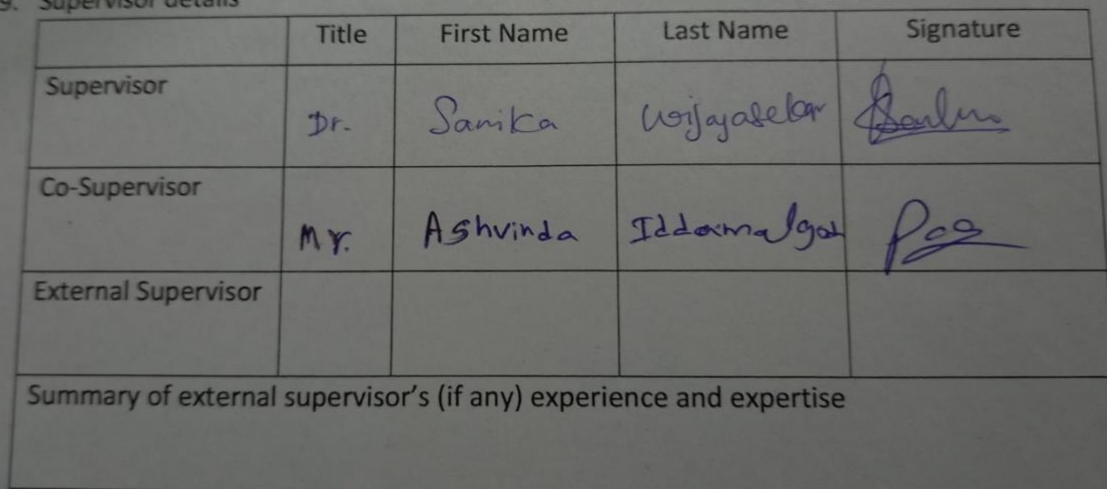 9. Supervisor details
Title First Name Last Name Signature
Supervisor
Dr. Sanika Wijayasekar
Co-Supervisor
Mr. Ashvinda Iddamalgoda
External Supervisor
Summary of external supervisor's (if any) experience and expertise